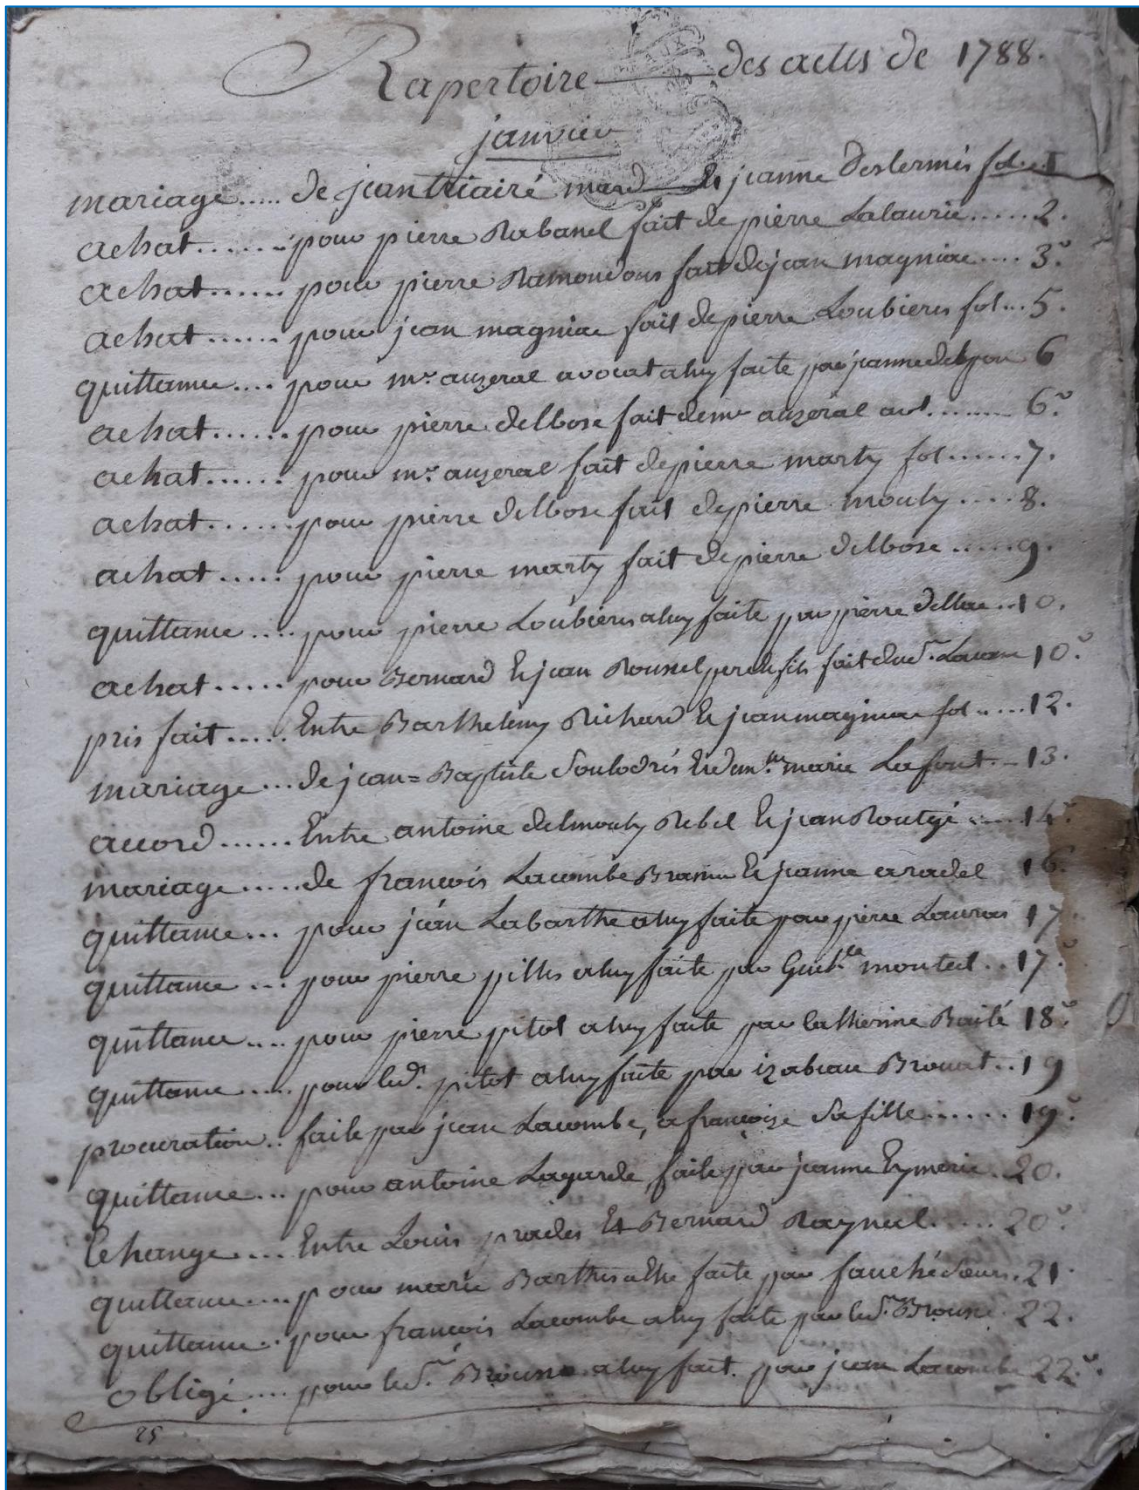 Rapertoire des actes de 1788.
janvier
mariage..... de jean mard et jeanne Deslermés fol. 1
achat....... pour pierre Rabanel fait de pierre Lalaurie...... 2.
achat...... pour pierre Ramondous fait de jean magniac.... 3.v
achat...... pour jean magniac fait de pierre Loubieres fol... 5.
quittance.... pour mr. auzeral avocat a luy faite par jeanne 6
achat...... pour pierre delbose fait de mr auzeral avt........ 6.v
achat...... pour mr. auzeral fait de pierre marty fol...... 7.
achat....... pour pierre delbose fait de pierre mouly..... 8.
achat..... pour pierre marty fait de pierre delbose..... 9.
quittance.... pour pierre Loubieres a luy faite par pierre 10.
achat..... pour Bernard et jean Roussel pere et fils fait dud. 10.v
pris fait..... Entre Barthelemy Richard et jean magniac fol..... 12.
mariage... de jean=Baptiste et marie Lafont.. 13.
accord...... Entre antoine delmouly Rebel et jean 14.v
mariage..... de francois Lacombe et jeanne aradel 16.
quittance... pour jean Labarthe a luy faite par pierre 17.
quittance... pour pierre a luy faite par monteil.. 17.v
quittance.... pour pierre pitot a luy faite par Catherine 18.v
quittance..... pour led. pitot a luy faite par izabeau.. 19
procuration.. faite par jean Lacombe, a francoise Sa fille...... 19.v
quittance... pour antoine Lagarde, faite par jeanne Eymerie. 20.
Echange.... Entre Louis prades Et Bernard..... 20.v
quittance.... pour marie faite par. 21.
quittance.. pour francois Lacombe a luy faite par led. 22.
obligé.... pour led. a luy fait. par jean Lacombe 22.v
25